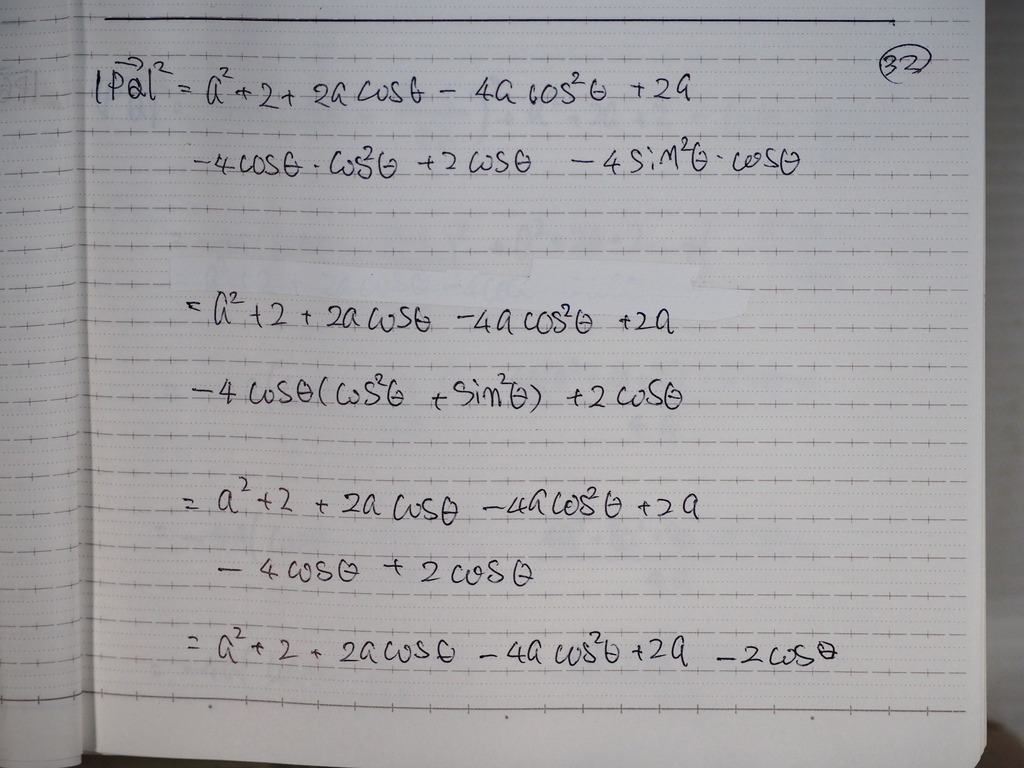 32
|PQ⃗|² = a² + 2 + 2a cosθ - 4a cos²θ + 2a
-4cosθ · cos²θ + 2cosθ - 4 sin²θ · cosθ
= a² + 2 + 2a cosθ - 4a cos²θ + 2a
-4 cosθ(cos²θ + sin²θ) + 2 cosθ
= a² + 2 + 2a cosθ - 4a cos²θ + 2a
- 4 cosθ + 2 cosθ
= a² + 2 + 2a cosθ - 4a cos²θ + 2a - 2cosθ